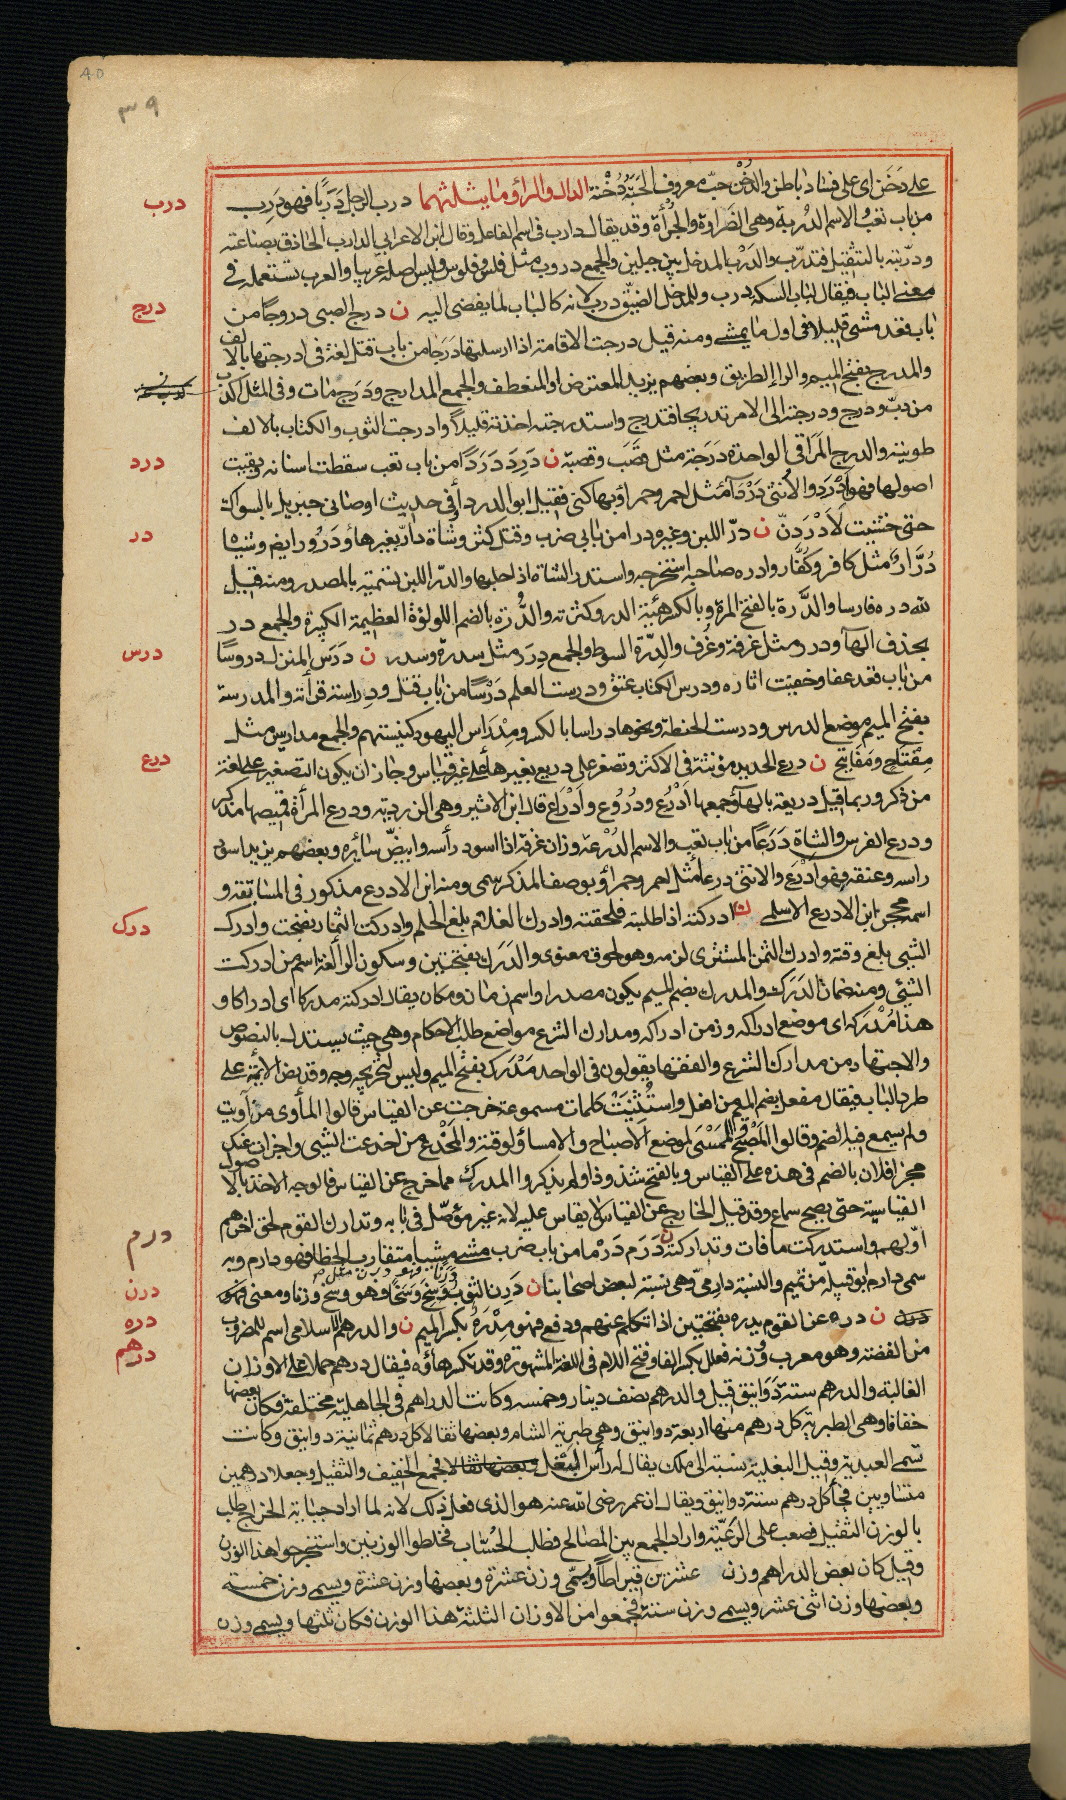 ٣٩
على دخن اى على فساد باطن والدخن حب معروف الحبة دُخْنة الدال والراؤ وما يثلثهما درب الرجل دَرَبًا فهو دَرِب
من باب تعب والاسم الدربة وهى الضراوة والجرأة وقد يقال دارب فى اسم الفاعل وقال ابن الاعرابى الدارب الحاذق بصناعته
ودرّبته بالتثقيل فتدرّب والدَرْب المدخل بين جبلين والجمع دروب مثل فلس وفلوس وليس اصله عربيا والعرب تستعمله فى
معنى الباب فيقال لباب السكة درب وللمدخل الضيّق درب لانه كالباب لما يفضى اليه ن درج الصبى دروجًا من
باب قعد مشى قليلا فى اول ما يمشى ومنه قيل درجت الاقامة اذا ارسلتها درجا من باب قتل لغة فى ادرجتها بالالف
والمدرج بفتح الميم والراء الطريق وبعضهم يزيد المعترض او المنعطف والجمع المدارج ودَرَج مات وفى المثل اكذب
من دبّ ودرج ودرجته الى الامر تدريجا فتدرج واستدرجته اخذته قليلا وادرجت الثوب والكتاب بالالف
طويته والدرج المَرَاقى الواحدة دَرَجة مثل قَصَب وقصبة ن دَرِدَ دَرَدًا من باب تعب سقطت اسنانه وبقيت
اصولها فهو أَدْرَد والانثى دَرْدَاء مثل احمر وحمراؤ وبها كنى فقيل ابو الدرداؤ وفى حديث اوصانى جبريل بالسواك
حتى خشيت لَاَدْرَدِنّ ن درّ اللبن وغيره درا من بابى ضرب وقتل كثر وشاة دارّ بغيرهاؤ ودَرُور ايضم وشياه
دُرَّارٌ مثل كافر وكُفَّار وادره صاحبه استخرجه واستدر الشاة اذا حلبها والدرّ اللبن تسميته بالمصدر ومنه قيل
لله دره فارسا والدَّرة بالفتح المرة وبالكسر هيئة الدر وكثرته والدُّرة بالضم اللولؤة العظيمة الكبيرة والجمع در
بحذف الهاؤ ودرر مثل غرفة وغُرَف والدِرّة السوط والجمع دِرَر مثل سدرة وسدر ن دَرَسَ المنزل دروسًا
من باب قعد عفا وخفيت اثاره ودرس الكتاب عتق ودرست العلم دَرْسًا من باب قتل ودِراسة قرأته والمدرسة
بفتح الميم موضع الدرس ودرست الحنطة ونحوها دراسا بالكسر ومِدْرَاس اليهود كنيستهم والجمع مداريس مثل
مِفْتَاح ومَفَاتِح ن درع الحديد مؤنثة فى الاكثر وتصغر على دريع بغير هاء على غير قياس وجاز ان يكون التصغير على لغة
من ذكر وربما قيل دريعة بالهاؤ وجمعها اَدْرُع ودُرُوع واَدْرَاع قال ابن الاثير وهى الزردية ودرع المرأة قميصها مذكر
ودرع الفرس والشاة دَرَعًا من باب تعب والاسم الدُرْعة وزان غرفة اذا اسود رأسه وابيضّ سائره وبعضهم يزيد اسود
راسه وعنقه فهو اَدْرَع والانثى درعاء مثل احمر وحمراؤ وبوصف المذكر سمى ومنه ابن الادرع مذكور فى المسابقة و
اسمه محجن ابن الادرع الاسلمى ن ادركته اذا طلبته فلحقته وادرك الغلام بلغ الحلم وادركت الثمار نضجت وادرك
الشيى بلغ وقته وادرك الثمن المشترى لزمه وهو لحوق معنوى والدَرَك بفتحتين وسكون الراؤ لغة اسم من ادركت
الشيئ ومنه ضمان الدَرَك والمدرك بضم الميم يكون مصدرا واسم زمان ومكان يقال ادركته مدركا اى ادراكا و
هذا مُدْرَكه اى موضع ادراكه وزمن ادراكه ومدارك الشرع مواضع طلب الاحكام وهى حيث يستدل بالنصوص
والاجتهاد من مدارك الشرع والفقهاء يقولون فى الواحد مَدْرَك بفتح الميم وليس لتخريجه وجه وقد نص الائمة على
طرد الباب فيقال مفعل بضم الميم من افعل واستُثْنِيَتْ كلمات مسموعة خرجت عن القياس قالوا المأوى من آويت
ولم يسمع فيه الضم وقالوا المَصْبَح والمَمْسَى لموضع الاصباح والامساؤ ولوقته والمَخْدَع من اخدعت الشيى واجزات عنك
مجزا فلان بالضم فى هذه على القياس وبالفتح شذوذا ولم يذكروا المدرك مما خرج عن القياس فالوجه الاخذ بالاصول
القياسية حتى يصح سماع وقد قيل الخارج عن القياس لا يقاس عليه لانه غير مؤصّل فى بابه وتدارك القوم لحق اخرهم
اوّلهم واستدركت ما فات وتداركته ن دَرَمَ دَرْما من باب ضرب مشى مشيا متقارب الخطا فهو دارم وبه
سمى دارم ابو قبيلة من تميم والنسبة دارِمِىّ وهى نسبة لبعض اصحابنا ن دَرِن الثوب دَرَنًا فهو درن مثل وَسِخ وَسَخًا فهو وسخ وزنا ومعنى فهو
درن ن دره عن القوم يدره بفتحتين اذا تكلم عنهم ودفع فهو مِدْرَه بكسر الميم ن والدرهم الاسلامى اسم للمضروب
من الفضة وهو معرب وزنه فعلل بكسر الفاؤ وفتح اللام فى اللغة المشهورة وقد تكسر هاؤه فيقال درهم حملا على الاوزان
الغالبة والدرهم ستة دَوَانيق قيل والدرهم نصف دينار وخمسه وكانت الدراهم فى الجاهلية مختلفة فكان بعضها
خفافا وهى الطبرية كل درهم منها اربعة دوانيق وهى طبرية الشام وبعضها ثقالا كل درهم ثمانية دوانيق وكانت
تسمى العبدية وقيل البغلية نسبة الى ملك يقال له رأس البَغْل وبعضها ثقالا فجمع الخفيف والثقيل وجعلا درهمين
متساويين فجاء كل درهم ستة دوانيق ويقال ان عمر رضى الله عنه هو الذى فعل ذلك لانه لما اراد جباية الخراج طلب
بالوزن الثقيل فصعب على الرَعيّة واراد الجمع بين المصالح فطلب الحُسّاب فخلطوا الوزنين واستخرجوا هذا الوزن
وقيل كان بعض الدراهم وزن عشرين قيراطا ويسمّى وزن عشرة وبعضها وزن عشرة ويسمى وزن خمسة
وبعضها وزن اثنى عشر ويسمى وزن ستة فجمعوا من الاوزان الثلثة هذا الوزن فكان ثلثها ويسمى وزن
درب
درج
درد
در
درس
درع
درك
درم
درن
دره
درهم